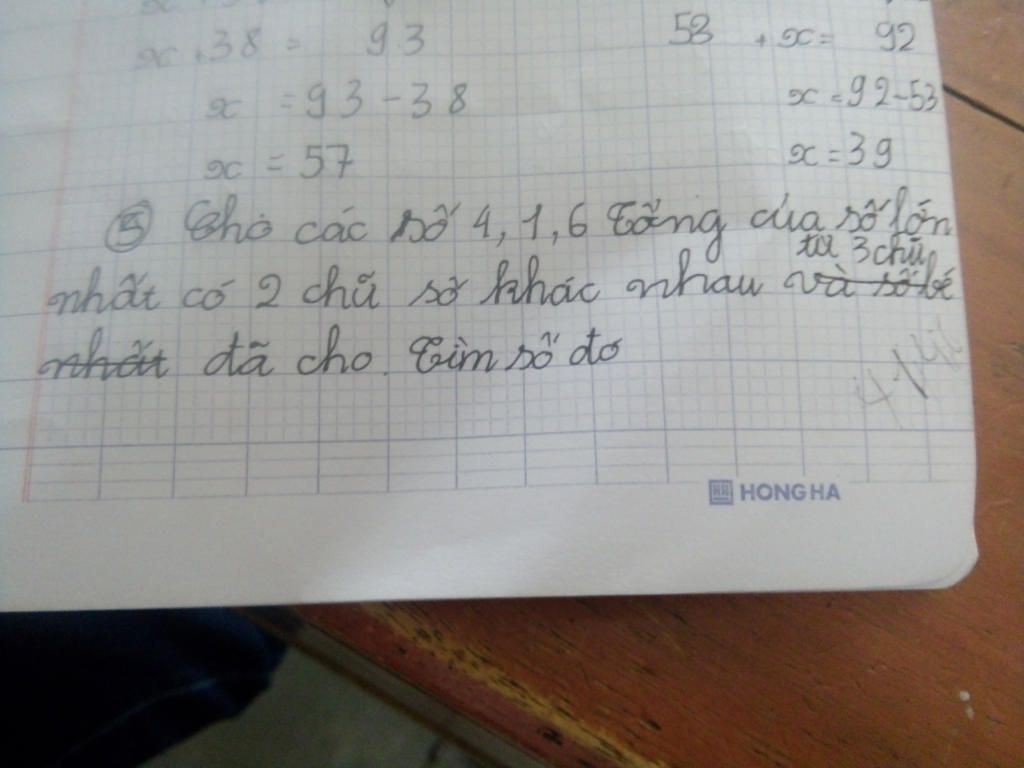 x + 38 = 93 53 + x = 92
x = 93 - 38 x = 92 - 53
x = 57 x = 39
⑤ Cho các số 4, 1, 6 Tổng của số lớn
từ 3 chữ
nhất có 2 chữ số khác nhau và số bé
nhất đã cho. Tìm số đó
HONG HA